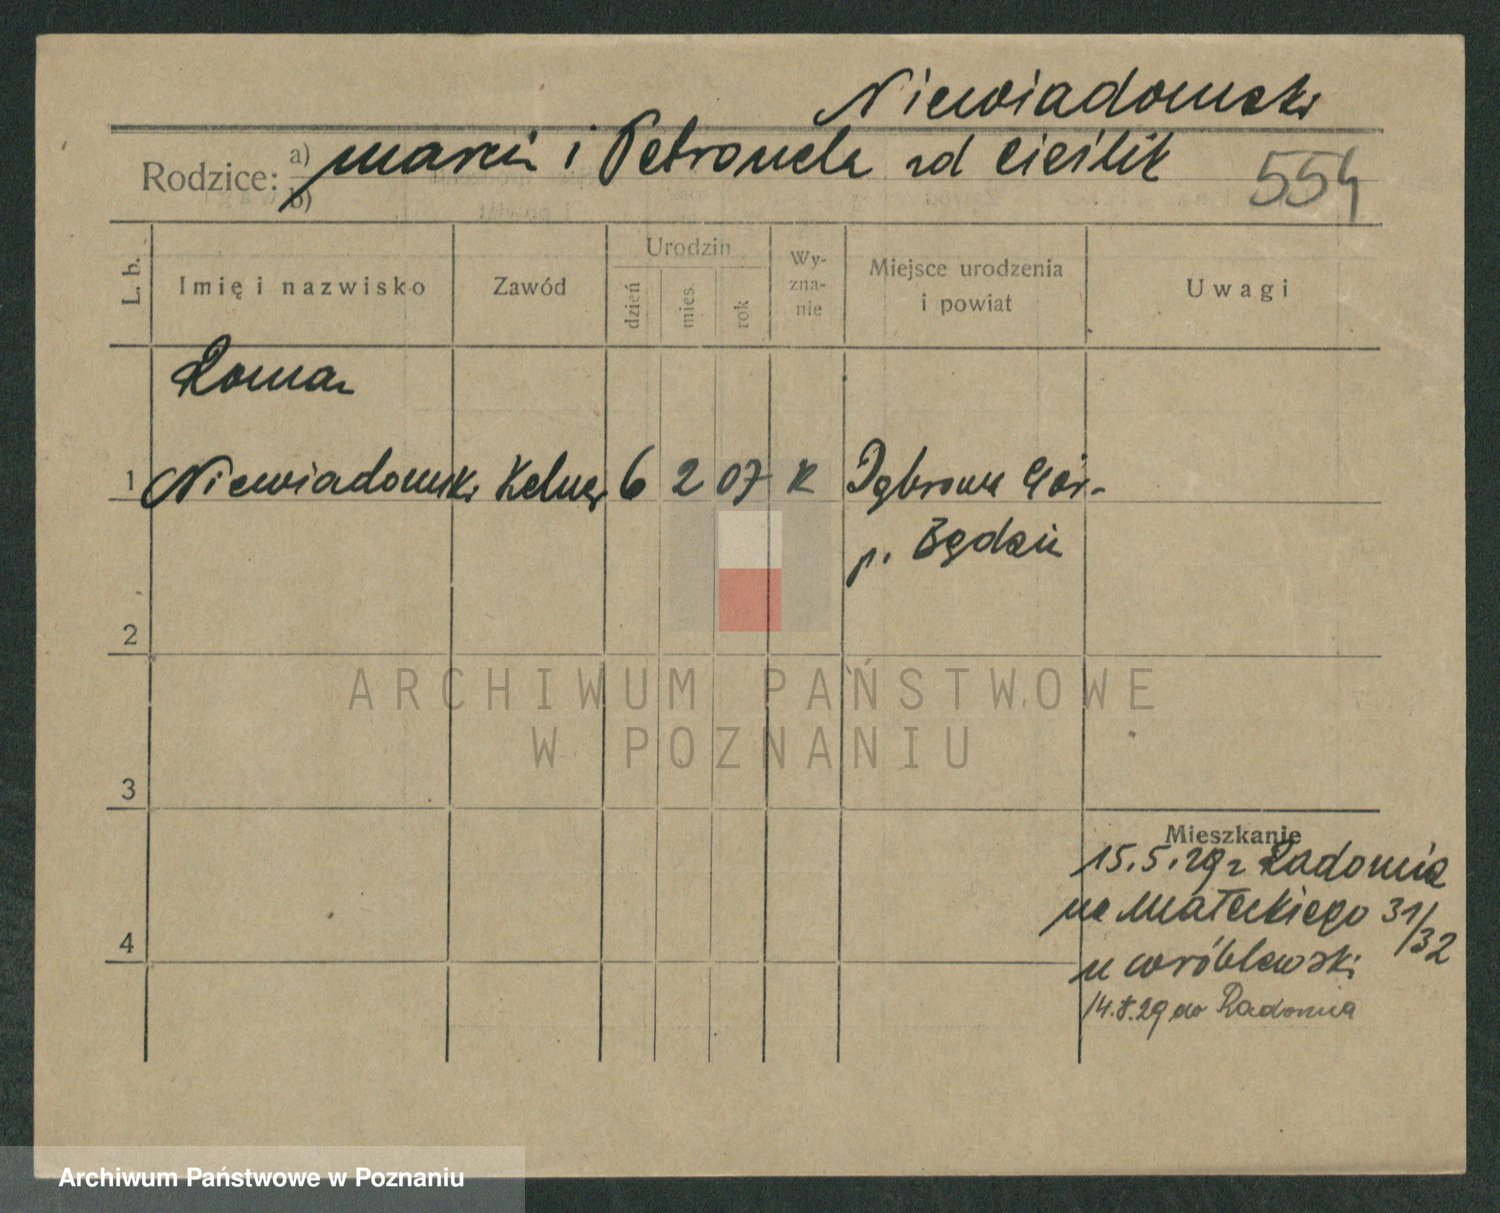 Niewiadomski
Rodzice: a) Marcin i Petronela zd Cieślik
b)
554
L. b.
Imię i nazwisko
Zawód
Urodzin
dzień
mies.
rok
Wy-
zna-
nie
Miejsce urodzenia
i powiat
Uwagi
Roman
1 Niewiadomski Kelner 6 2 07 K Dąbrowa Gór-
p. Będzin
2
ARCHIWUM PAŃSTWOWE
W POZNANIU
3
Mieszkanie
15.5.29 z Radomia
na Małeckiego 31/32
4
u Wróblewski
14.8.29 do Radomia
Archiwum Państwowe w Poznaniu